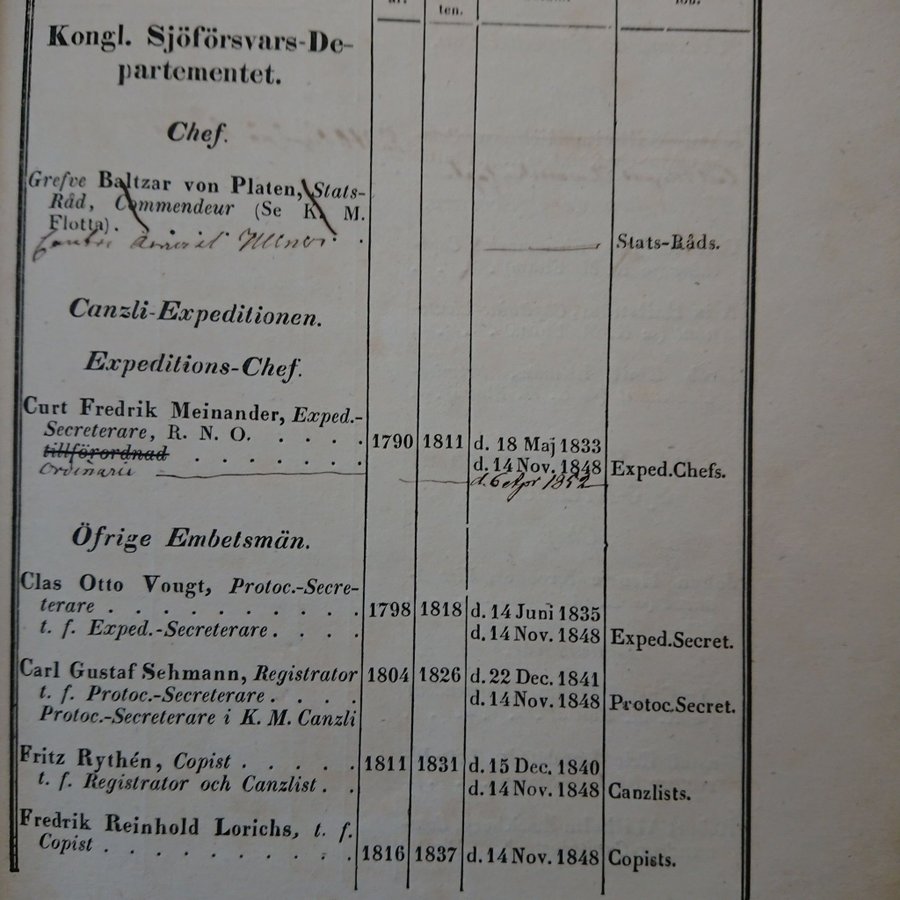 ten.
Kongl. Sjöförsvars-De-
partementet.
Chef.
Grefve Baltzar von Platen, Stats-
Råd, Commendeur (Se K. M.
Flotta). . . .
Contre Amiral
Stats-Råds.
Canzli-Expeditionen.
Expeditions-Chef.
Curt Fredrik Meinander, Exped.-
Secreterare, R. N. O. . . . . 1790 1811 d. 18 Maj 1833
tillförordnad . . . . . . . d. 14 Nov. 1848 Exped.Chefs.
Ordinarie d. 6 Apr 1852
Öfrige Embetsmän.
Clas Otto Vougt, Protoc.-Secre-
terare . . . . . . . . . . 1798 1818 d. 14 Juni 1835
t. f. Exped.-Secreterare . . . . d. 14 Nov. 1848 Exped.Secret.
Carl Gustaf Sehmann, Registrator 1804 1826 d. 22 Dec. 1841
t. f. Protoc.-Secreterare . . . . d. 14 Nov. 1848 Protoc.Secret.
Protoc.-Secreterare i K. M. Canzli
Fritz Rythén, Copist . . . . . 1811 1831 d. 15 Dec. 1840
t. f. Registrator och Canzlist . . d. 14 Nov. 1848 Canzlists.
Fredrik Reinhold Lorichs, t. f.
Copist . . . . . . . . . . 1816 1837 d. 14 Nov. 1848 Copists.